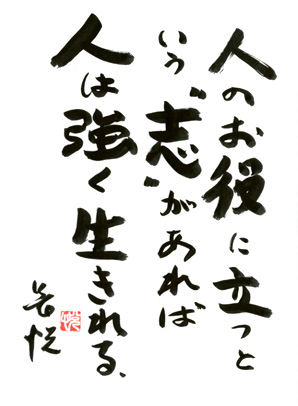 人のお役に立つと
いう〝志〟があれば
人は強く生きれる、